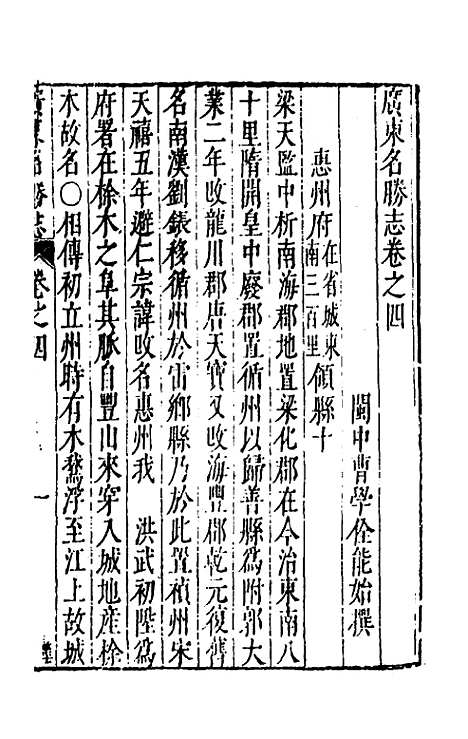 廣東名勝志卷之四
閩中曹學佺能始撰
惠州府在省城東南三百里領縣十
梁天監中析南海郡地置梁化郡在今治東南八
十里隋開皇中廢郡置循州以歸善縣爲附郭大
業二年改龍川郡唐天寶又改海豐郡乾元復舊
名南漢劉鋹移循州於雷鄉縣乃於此置禎州宋
天禧五年避仁宗諱改名惠州我 洪武初陞爲
府署在梌木之阜其脉自豐山來穿入城地産梌
木故名〇相傳初立州時有木鵞浮至江上故城
廣東名勝志 卷之四 一